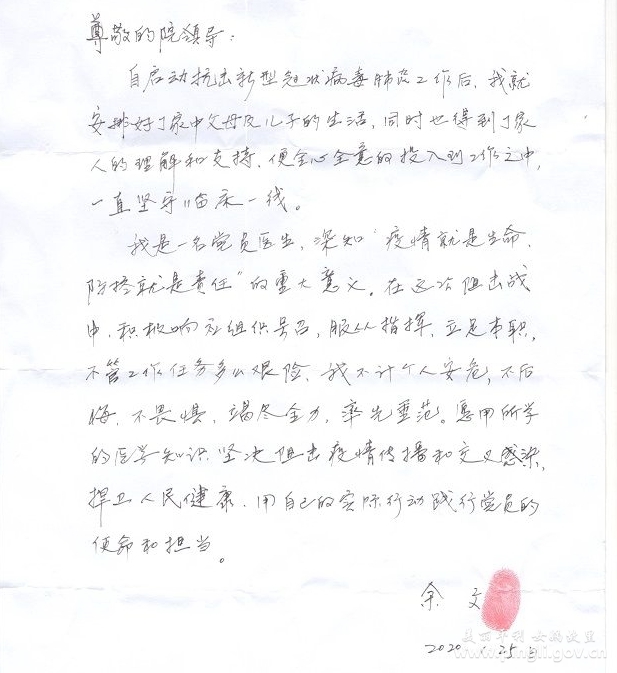 尊敬的院领导：
自启动抗击新型冠状病毒肺炎工作后，我就
安排好了家中父母及儿子的生活，同时也得到了家
人的理解和支持，便全心全意的投入到工作之中，
一直坚守临床一线。
我是一名党员医生，深知“疫情就是生命，
防控就是责任”的重大意义。在这次阻击战
中，积极响应组织号召，服从指挥，立足本职，
不管工作任务多么艰险，我不计个人安危，不后
悔，不畏惧，竭尽全力，率先垂范。愿用所学
的医学知识坚决阻击疫情传播和交叉感染，
捍卫人民健康，用自己的实际行动践行党员的
使命和担当。
余文
2020 25日
www.pingli.gov.cn